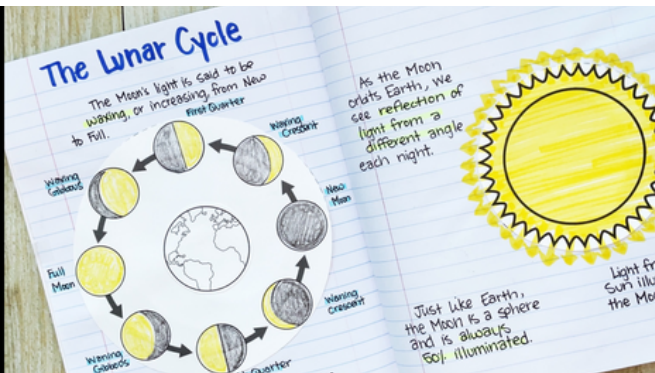 The Lunar Cycle
The Moon's light is said to be
waxing, or increasing, from New
to Full.
First Quarter
Waxing
Crescent
New
Moon
Waning
Crescent
Quarter
Waning
Gibbous
Full
Moon
Waxing
Gibbous
As the Moon
orbits Earth, we
see reflection of
light from a
different angle
each night.
Just like Earth,
the Moon is a sphere
and is always
50% illuminated.
Light fr
Sun illu
the Mo